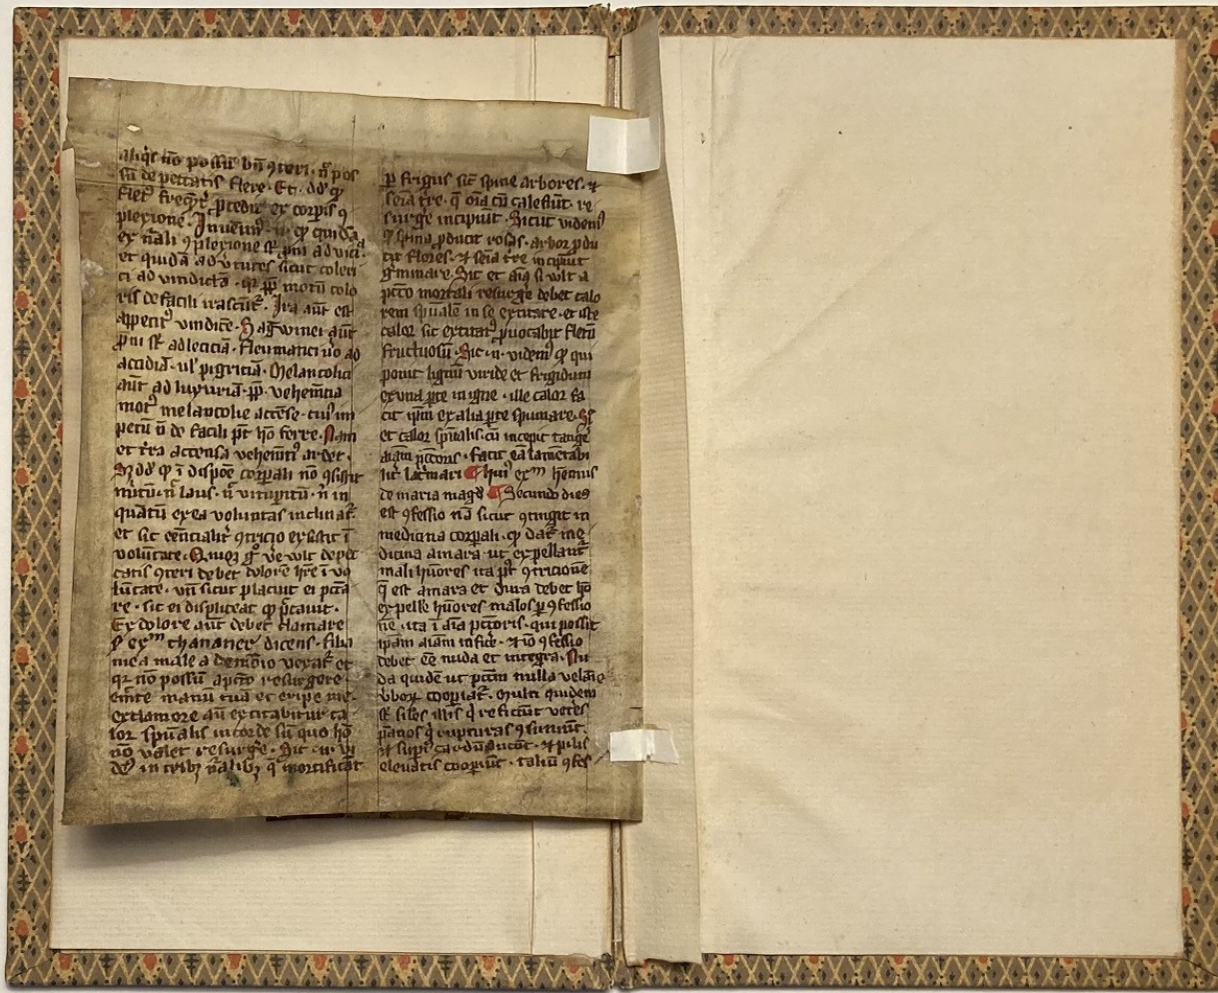 aliq̄s nō possūt bn̄ ꝯteri · n̄ pos
sūt de peccatis flere · Et · dd̓ ꝙ
flet᷒ freqn̄t᷑ ꝓcedit ex corpis ꝯ
plexione · Inuenim᷒ · n̄ · ꝙ quidā
ex nāli ꝯplexione st̄ ꝓni ad vicia
et quidā ad v̓tutes sicut coleri
ci ad vindictā · qr̄ ꝓpt̓ motū cole
ris de facili irascūt᷑ · Ira aūt est
appetit᷒ vindicte · Sagwinei aūt
ꝓni st̄ ad leticiā · Fleumatici v̓o ad
accidiā · ul̓ pigriciā · Melancolici
aūt ad luxuriā · ꝓpt̓ · vehem̄ciā
mot᷒ melancolie accēse · cui᷒ im
petū n̄ de facili pt̄ hō ferre · Nam
et t̓ra accensa vehem̄ti᷒ ardet ·
dd̓ ꝙ ī dispōe corp̲ali nō ꝯsistit
m̓itū · n̄ laus · n̄ vitup̲iū · n̄ in
quātū ex ea voluntas inclinat᷑
et sic eēncialit̓ ꝯtricio existit ī
voluntate · g̊ v̓e wlt de pec
catis ꝯteri debet dolorē hr̄e ī vo
lūtate · vn̄ sicut placuit ei pcc̄a
re · sic ei displiceat ꝙ p̄cauit ·
Ex dolore aūt debet clamare
ex͞m chananee dicens · filia
mea male a demōio vexat᷑ et
qr̄ nō possū a pcc̄o resurgere
emitte manū tuā et eripe me ·
ex clamore aūt excitabitur ca
lor sp̄ualis in corde sn̄ quo hō
nō valet resurg̓e · Sic · n̄ · vi
dem᷒ in reb᷒ n̄alib᷒ ꝙ mortificāt᷑
ꝑ frigus sic̄ spine arbores · ⁊
seīa t̓re · q̄ oīa cū calefiūt · re
surg̓e incipiūt · Sicut videm᷒
ꝙ spina ꝓducit rosas · arbor ꝓdu
cit flores · ⁊ seīa t̓re incipiūt
g̓minare · Sic et aīa si wlt a
pcc̄o mortali resurg̓e debet calo
rem sp̄ualē in se excitare · et iste
calor sic excitat᷒ ꝓuocabit fletū
fructuosū · Sic · n̄ · videm᷒ ꝙ qui
ponit lignū viride et frigidum
ex una ꝑte in igne · ille calor fa
cit ip̄m ex alia ꝑte spumare · Sic
et calor sp̄ualis · cū incepit tang̓e
aīam pcc̄oris · facit eā lam̄tabi
lit̓ lac̓mari ¶ hui᷒ ex͞m hēmus
de maria magd̓ ¶ Secundo dies
est ꝯfessio nā sicut ꝯtingit in
medicina corp̲ali · ꝙ dat᷑ me
dicina amara ut expellant᷑
mali hūores ita ꝑ ꝯtricionē
q̄ est amara et dura debet hō
expelle hūores malos ꝑ ꝯfessio
nē · ita ī aīa pcc̄oris · qui possūt
ip̄am aīam inficē · ⁊ iō ꝯfessio
debet eē nuda et integra · Nu
da quidē ut pcc̄m nulla velaīe
v̓boꝝ coop̲iat᷑ · Multi quidem
st̄ siles illis q̇ reficiūt vetēs
pānos q̇ rupturas ꝯsuūnt ·
⁊ pilis
eleuatis coop̲iūt · taliū ꝯfes